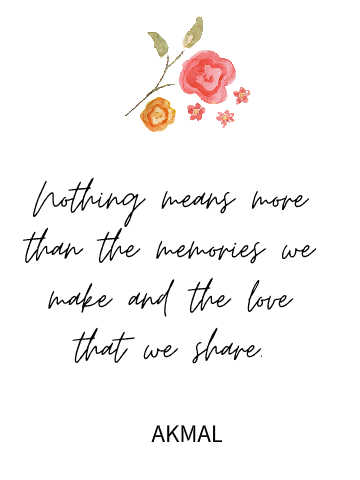 Nothing means more
than the memories we
make and the love
that we share.
AKMAL